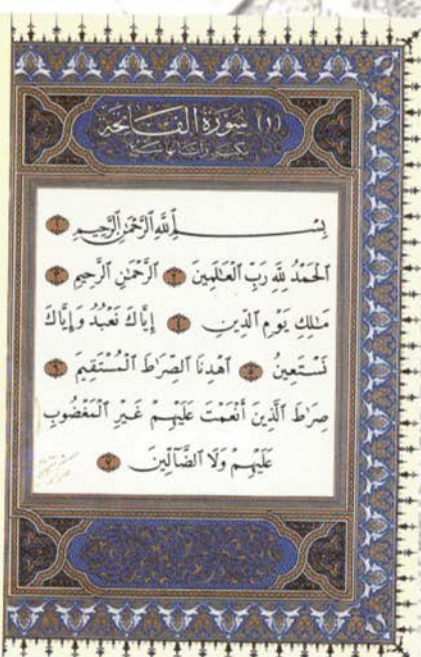 (١) سُورَةُ الفَاتِحَةِ
بِسْمِ ٱللَّهِ ٱلرَّحْمَٰنِ ٱلرَّحِيمِ ١
ٱلْحَمْدُ لِلَّهِ رَبِّ ٱلْعَٰلَمِينَ ٢ ٱلرَّحْمَٰنِ ٱلرَّحِيمِ ٣
مَٰلِكِ يَوْمِ ٱلدِّينِ ٤ إِيَّاكَ نَعْبُدُ وَإِيَّاكَ
نَسْتَعِينُ ٥ ٱهْدِنَا ٱلصِّرَٰطَ ٱلْمُسْتَقِيمَ ٦
صِرَٰطَ ٱلَّذِينَ أَنْعَمْتَ عَلَيْهِمْ غَيْرِ ٱلْمَغْضُوبِ
عَلَيْهِمْ وَلَا ٱلضَّآلِّينَ ٧